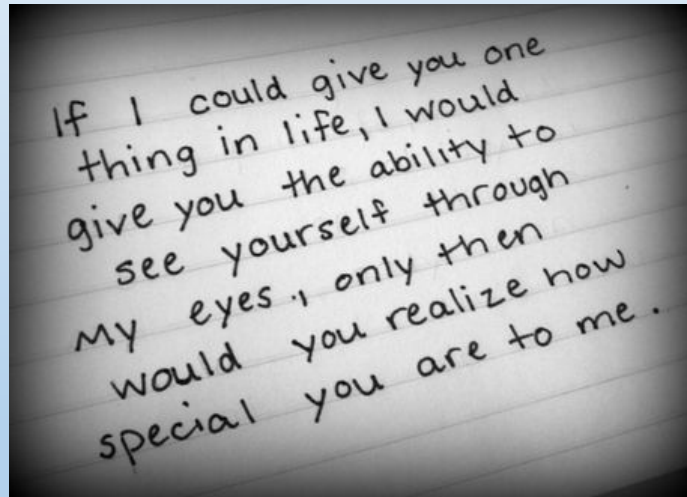 If I could give you one
thing in life, I would
give you the ability to
see yourself through
my eyes., only then
would you realize how
special you are to me.